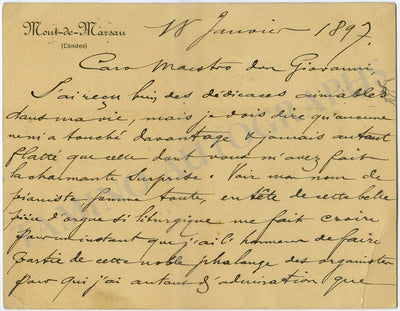 Mont-de-Marsan
(Landes)
18 Janvier 1897.
Caro Maestro don Giovanni
J'ai reçu bien des dédicaces aimables
dans ma vie, mais je dois dire qu'aucune
ne m'a touché davantage & jamais autant
flatté que celle dont vous m'avez fait
la charmante surprise. Voir mon nom de
pianiste, somme toute, en tête de cette belle
pièce d'orgue si liturgique me fait croire
pour un instant que j'ai l'honneur de faire
partie de cette noble phalange des organistes
pour qui j'ai autant d'admiration que